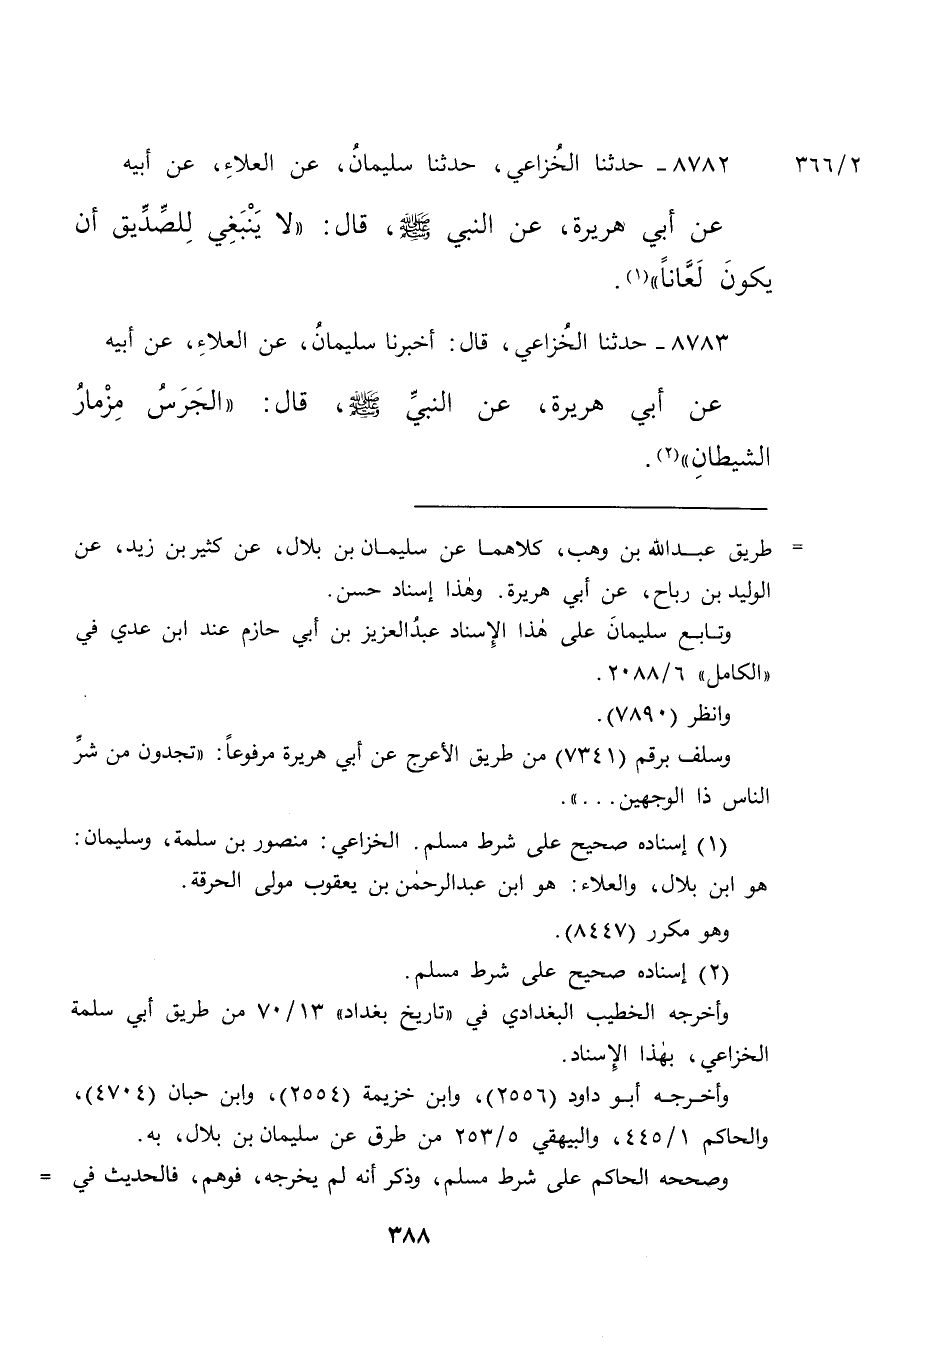 ٣٦٦/٢ ٨٧٨٢ - حدثنا الخُزاعي، حدثنا سليمانُ، عن العلاءِ، عن أبيه
عن أبي هريرة، عن النبي ﷺ، قال: «لا يَنْبَغِي لِلصِّدِّيق أن
يكونَ لَعَّاناً»(١).
٨٧٨٣ - حدثنا الخُزاعي، قال: أخبرنا سليمانُ، عن العلاءِ، عن أبيه
عن أبي هريرة، عن النبيِّ ﷺ، قال: «الجَرَسُ مِزْمارُ
الشيطانِ»(٢).
= طريق عبدالله بن وهب، كلاهما عن سليمان بن بلال، عن كثير بن زيد، عن
الوليد بن رباح، عن أبي هريرة. وهٰذا إسناد حسن.
وتابع سليمانَ على هٰذا الإِسناد عبدُالعزيز بن أبي حازم عند ابن عدي في
«الكامل» ٢٠٨٨/٦.
وانظر (٧٨٩٠).
وسلف برقم (٧٣٤١) من طريق الأعرج عن أبي هريرة مرفوعاً: «تجدون من شرِّ
الناس ذا الوجهين...».
(١) إسناده صحيح على شرط مسلم. الخزاعي: منصور بن سلمة، وسليمان:
هو ابن بلال، والعلاء: هو ابن عبدالرحمٰن بن يعقوب مولى الحرقة.
وهو مكرر (٨٤٤٧).
(٢) إسناده صحيح على شرط مسلم.
وأخرجه الخطيب البغدادي في «تاريخ بغداد» ٧٠/١٣ من طريق أبي سلمة
الخزاعي، بهٰذا الإِسناد.
وأخرجه أبو داود (٢٥٥٦)، وابن خزيمة (٢٥٥٤)، وابن حبان (٤٧٠٤)،
والحاكم ٤٤٥/١، والبيهقي ٢٥٣/٥ من طرق عن سليمان بن بلال، به.
وصححه الحاكم على شرط مسلم، وذكر أنه لم يخرجه، فوهم، فالحديث في =
٣٨٨